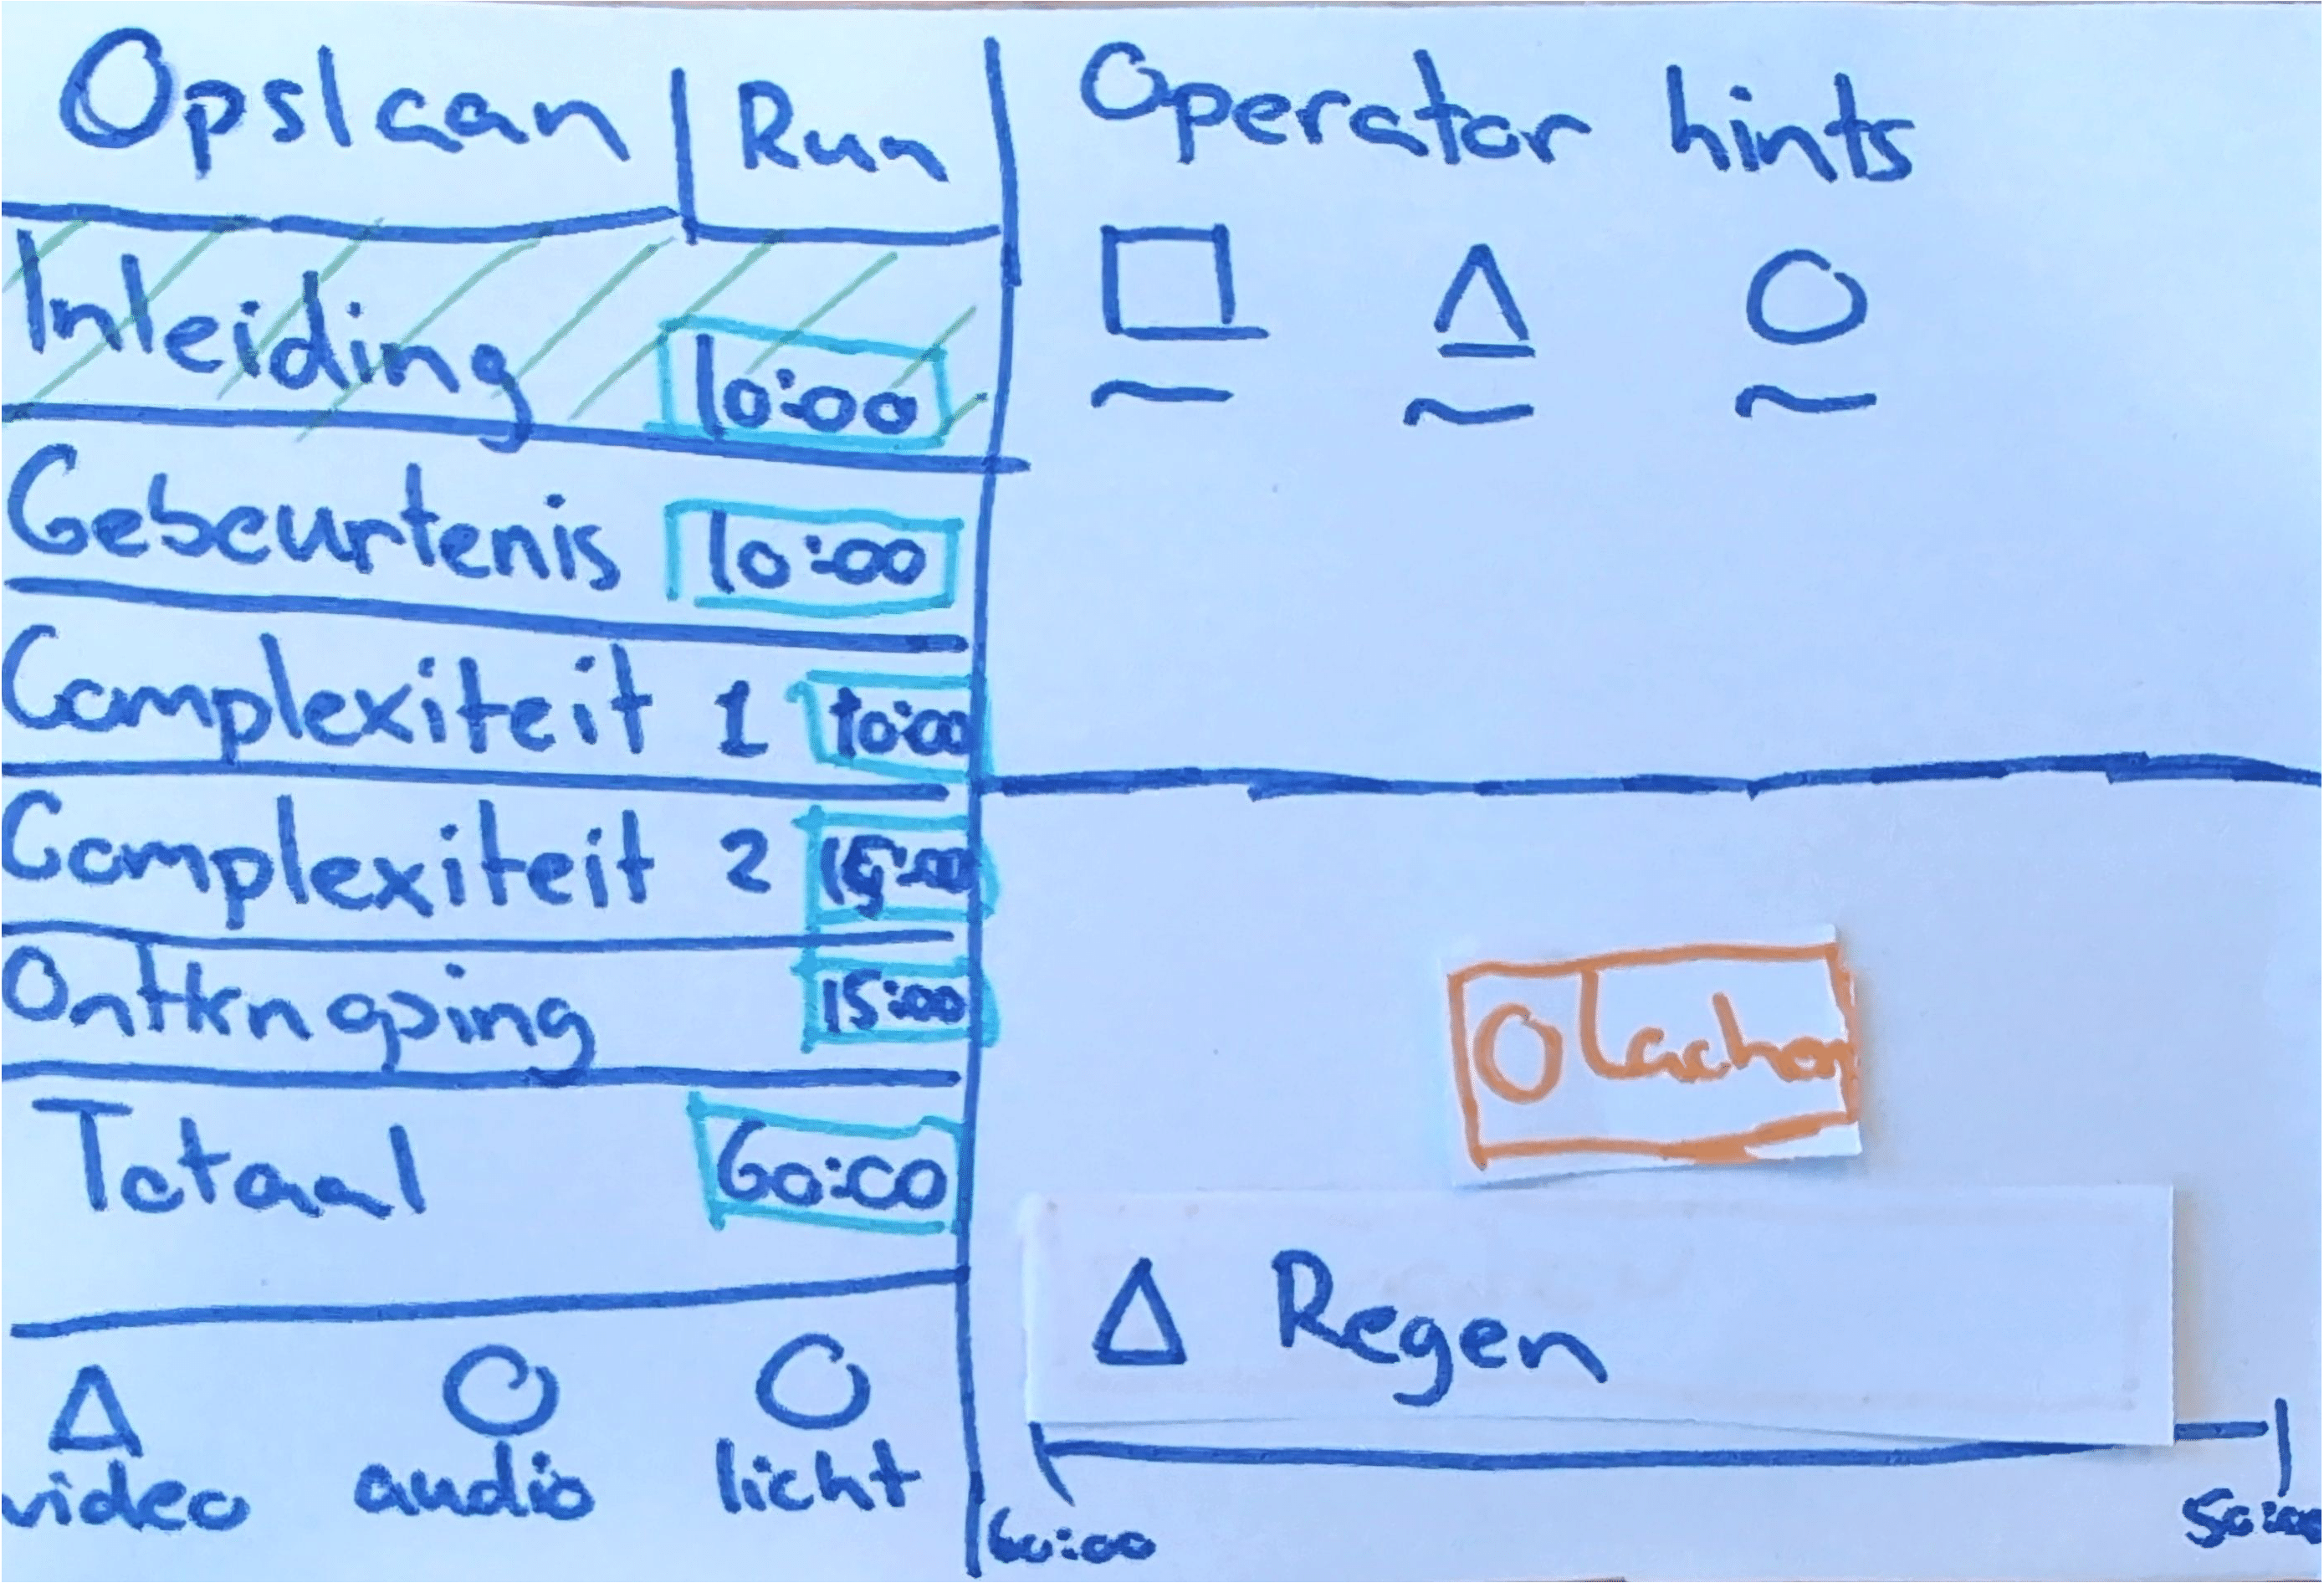 Opslaan Run
Inleiding 10:00
Gebeurtenis 10:00
Complexiteit 1 10:00
Complexiteit 2 15:00
Ontknoping 15:00
Totaal 60:00
video audio licht
Operator hints
Lachen
Regen
60:00 50:00